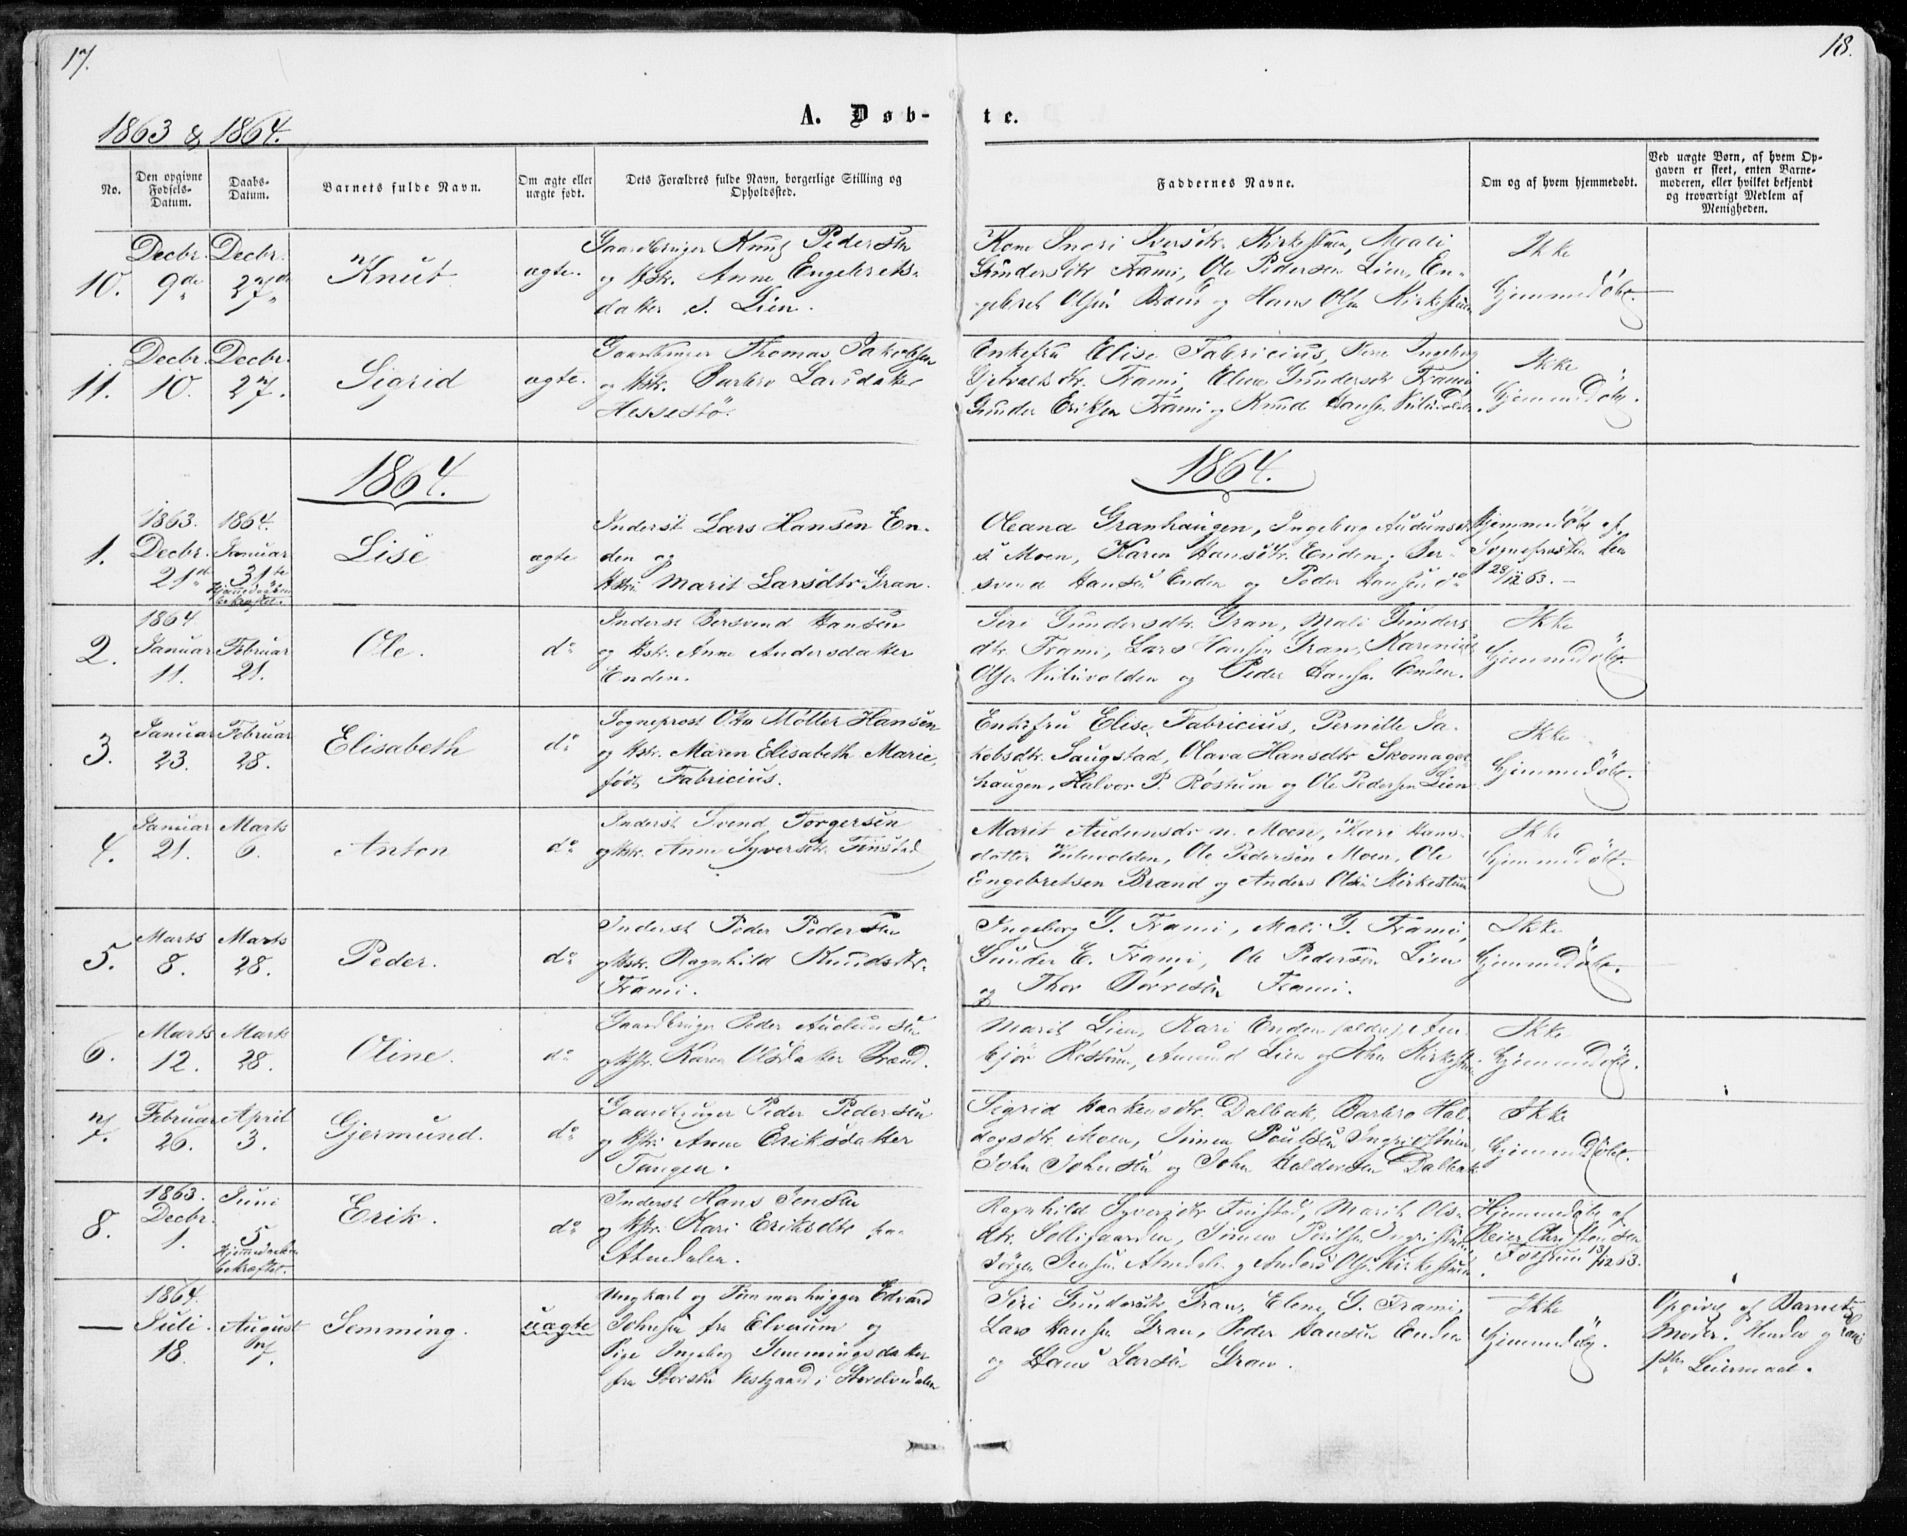 17.
18.
1863 & 1864.
A. Døb-
te.
No.
Den opgivne
Fødsels-
Datum.
Daabs-
Datum.
Barnets fulde Navn.
Om ægte eller
uægte født.
Dets Forældres fulde Navn, borgerlige Stilling og
Opholdssted.
Faddernes Navne.
Om og af hvem hjemmedøbt.
Ved uægte Børn, af hvem Op-
gaven er skeet, enten Barne-
moderen, eller hvilket bekjendt
og troværdigt Medlem af
Menigheden.
10.
Decbr.
9de
Decbr.
27de
Knut
ægte.
Gaardbruger Knut Pedersen
og Hstr. Anne Engebrets-
datter S. Lien.
Kone Ingri Iversdtr. Kirkestuen, Mali
Gundersdtr Frami, Ole Pedersen Lien, En-
gebret Olsen Brænd og Hans Olsen Kirkestuen
Ikke
hjemmedøbt.
11.
Decbr.
10.
Decbr.
27.
Sigrid
ægte.
Gaardbruger Thomas Jakobsen
og Hstr. Barbro Larsdatter
Messeltö.
Enkefru Elise Fabricius, Kone Ingeborg
Frami, Elene Gundersdtr Frami
Gunder Eriksen Frami og Knud Hansen
Ikke
hjemmedøbt.
1864.
1864.
1.
1863.
Decbr.
21de
1864.
Januar
31te
Hjemmedaaben
bekræftet.
Lise
ægte
Inderst Lars Hansen En-
den og
Hstr. Marit Larsdtr Gran.
Oleana Granhaugen, Ingeborg Audunsdtr
s. Moen, Karen Hansdtr. Enden, Ber-
svend Hansen Enden og Peder Hansen do
Hjemmedøbt af
Sogneprosten den
28/12 63.
2.
1864
Januar
11.
Februar
21.
Ole.
do
Inderst Bersvend Hansen
og Hstr. Anne Andersdatter
Enden.
Siri Gundersdtr. Gran, Mali Gunders-
dtr. Frami, Lars Hansen Gran, Karenius
Olsen Vuluvolden og Peder Hansen Enden.
Ikke
hjemmedøbt.
3.
Januar
23.
Februar
28.
Elisabeth
do
Sogneprost Otto Møller Hansen
og Hstr. Maren Elisabeth Marie,
født Fabricius.
Enkefru Elise Fabricius, Pernille Ja-
kobsdtr. Saugstad, Olava Hansdtr Skomager-
haugen, Halvor P. Røstum og Ole Pedersen Lien
Ikke
hjemmedøbt.
4.
Januar
21.
Marts
6.
Anton
do
Inderst Svend Torgersen
og Hstr. Anne Syversdtr. Finstad
Marit Audunsdtr n. Moen, Kari Hans-
datter Vuluvolden, Ole Pedersen Moen, Ole
Engebretsen Brænd og Anders Olsen Kirkestuen
Ikke
hjemmedøbt.
5.
Marts
8.
Marts
28.
Peder.
do
Inderst Peder Pedersen
og Hstr. Ragnhild Knudsdtr.
Frami.
Ingeborg G. Frami, Mali G. Frami,
Gunder E. Frami, Ole Pedersen Lien
og Thor Frami.
Ikke
hjemmedøbt.
6.
Marts
12.
Marts
28.
Oline.
do
Gaardbruger Peder Audunsen
og Hstr. Karen Olsdatter Brænd.
Marit Lien, Kari Enden (ældre), Am-
bjør Röstum, Amund Lien og John Kirkestuen
Ikke
hjemmedøbt.
7.
Februar
26.
April
3.
Gjermund.
do
Gaardbruger Peder Pedersen
og Hstr. Anne Eriksdatter
Tangen.
Sigrid Haakensdtr. Dalbak, Barbro Hal-
dogsdtr. Moen, Simen Poulsen Ingristuen,
John Johnsen og John Haldorsen Dalbak
Ikke
hjemmedøbt.
8.
1863.
Decbr.
1.
Juni
5
Hjemmedaaben
bekræftet.
Erik.
do
Inderst Hans Jensen
og Hstr. Kari Eriksdtr fra
Atnedalen.
Ragnhild Syversdtr Finstad, Marit Ols-
dtr. Sølligaarden, Simen Poulsen Ingristuen
Jörgen Jensen Atnedal og Anders Ols. Kirkestuen
Hjemmedøbt af
Reier Christensen
13/12 63.
1864.
Juli
18.
August
7.
Semming.
uægte
Ungkarl og Tømmerhugger Edvard
Johnsen fra Elverum og
Pige Ingeborg Semmingsdatter
fra Storstu Vestgaard i Storelvedalen
Siri Gundersdtr. Gran, Elene G. Frami,
Lars Hansen Gran, Peder Hansen Enden
og Hans Larsen Gran.
Ikke
hjemmedøbt.
Opgivet af Barnets
Moder. Hendes og hans
1ste Leiermaal.